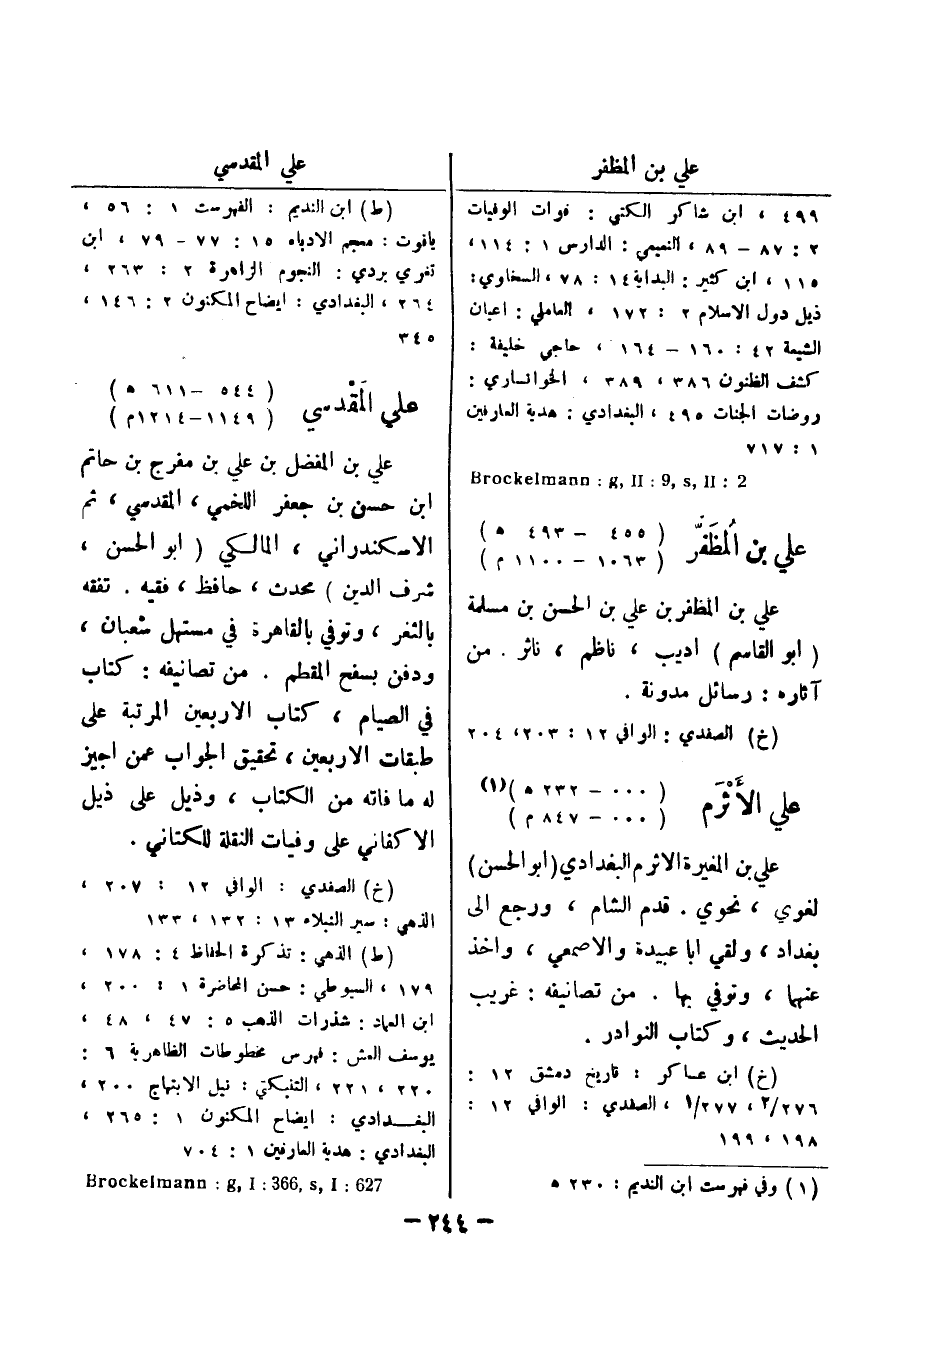 علي بن المظفر
٤٩٩ ، ابن شاكر الكتبي : فوات الوفيات
٢ : ٨٧ – ٨٩ ، النعيمي : الدارس ١ : ١١٤،
١١٥ ، ابن كثير : البداية ١٤ : ٧٨ ، السخاوي:
ذيل دول الاسلام ٢ : ١٧٢ ، العاملي : اعيان
الشيعة ٤٢ : ١٦٠ – ١٦٤ ، حاجي خليفة :
كشف الظنون ٣٨٦ ، ٣٨٩ ، الخوانساري :
روضات الجنات ٤٩٥ ، البغدادي : هدية العارفين
١ : ٧١٧
Brockelmann : g, II : 9, s, II : 2
علي بن المُظَفَّر ( ٤٥٥ – ٤٩٣ ه )
( ١٠٦٣ – ١١٠٠ م )
علي بن المظفر بن علي بن الحسن بن مسلمة
( ابو القاسم ) أديب ، ناظم ، ناثر . من
آثاره : رسائل مدونة .
(خ) الصفدي : الوافي ١٢ : ٢٠٣، ٢٠٤
علي الأَثْرَم ( ٠٠٠ – ٢٣٢ ه )(١)
( ٠٠٠ – ٨٤٧ م )
علي بن المغيرة الاثرم البغدادي (ابو الحسن)
لغوي ، نحوي . قدم الشام ، ورجع الى
بغداد ، ولقي ابا عبيدة والاصمعي ، واخذ
عنهما ، وتوفي بها . من تصانيفه : غريب
الحديث ، وكتاب النوادر .
(خ) ابن عساكر : تاريخ دمشق ١٢ :
٢/٢٧٦ ، ١/٢٧٧ ، الصفدي : الوافي ١٢ :
١٩٨ ، ١٩٩
(١) وفي فهرست ابن النديم : ٢٣٠ ه
علي المقدسي
(ط) ابن النديم : الفهرست ١ : ٥٦ ،
ياقوت : معجم الادباء ١٥ : ٧٧ – ٧٩ ، ابن
تغري بردي : النجوم الزاهرة ٢ : ٢٦٣ ،
٢٦٤ ، البغدادي : ايضاح المكنون ٢ : ١٤٦ ،
٣٤٥
علي المَقْدسي ( ٥٤٤ – ٦١١ ه )
( ١١٤٩ – ١٢١٤م )
علي بن المفضل بن علي بن مفرج بن حاتم
ابن حسن بن جعفر اللخمي ، المقدسي ، ثم
الاسكندراني ، المالكي ( ابو الحسن ،
شرف الدين ) محدث ، حافظ ، فقيه . تفقه
بالثغر ، وتوفي بالقاهرة في مستهل شعبان ،
ودفن بسفح المقطم . من تصانيفه : كتاب
في الصيام ، كتاب الاربعين المرتبة على
طبقات الاربعين ، تحقيق الجواب عمن اجيز
له ما فاته من الكتاب ، وذيل على ذيل
الاكفاني على وفيات النقلة للكتاني .
(خ) الصفدي : الوافي ١٢ : ٢٠٧ ،
الذهبي : سير النبلاء ١٣ : ١٣٢ ، ١٣٣
(ط) الذهبي : تذكرة الحفاظ ٤ : ١٧٨ ،
١٧٩ ، السيوطي : حسن المحاضرة ١ : ٢٠٠ ،
ابن العماد : شذرات الذهب ٥ : ٤٧ ، ٤٨ ،
يوسف العش : فهرس مخطوطات الظاهرية ٦ :
٢٢٠ ، ٢٢١ ، التنبكتي : نيل الابتهاج ٢٠٠ ،
البغـــدادي : ايضاح المكنون ١ : ٢٦٥ ،
البغدادي : هدية العارفين ١ : ٧٠٤
Brockelmann : g, I : 366, s, I : 627
– ٢٤٤ –